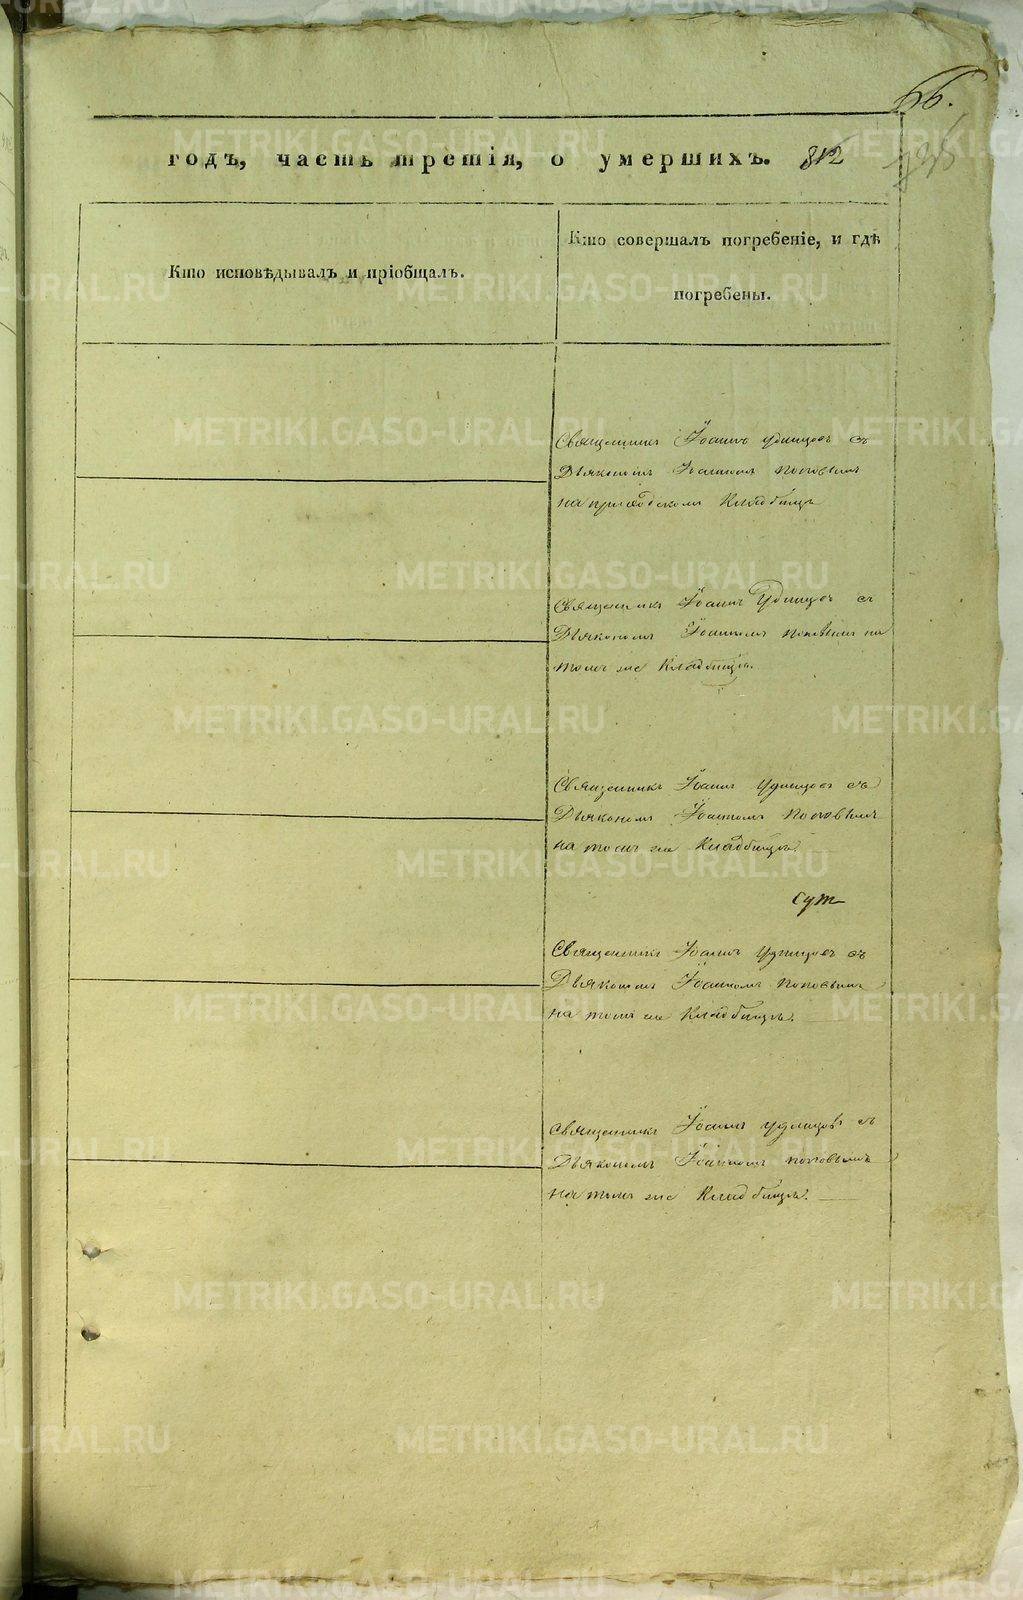 66.
годъ, часть третія, о умершихъ. 312
Кто исповѣдывалъ и пріобщалъ.
Кто совершалъ погребеніе, и гдѣ
погребены.
Священникъ Іоаннъ Удинцовъ съ
Дьякономъ Іоанномъ Поповымъ
на приходскомъ Кладбищѣ
Священникъ Іоаннъ Удинцовъ съ
Дьякономъ Іоанномъ Поповымъ на
томъ же Кладбищѣ.
Священникъ Іоаннъ Удинцовъ съ
Дьякономъ Іоанномъ Поповымъ
на томъ же Кладбищѣ.
Священникъ Іоаннъ Удинцовъ съ
Дьякономъ Іоанномъ Поповымъ
на томъ же Кладбищѣ.
Священникъ Іоаннъ Удинцовъ съ
Дьякономъ Іоанномъ Поповымъ
на томъ же Кладбищѣ.
METRIKI.GASO-URAL.RU